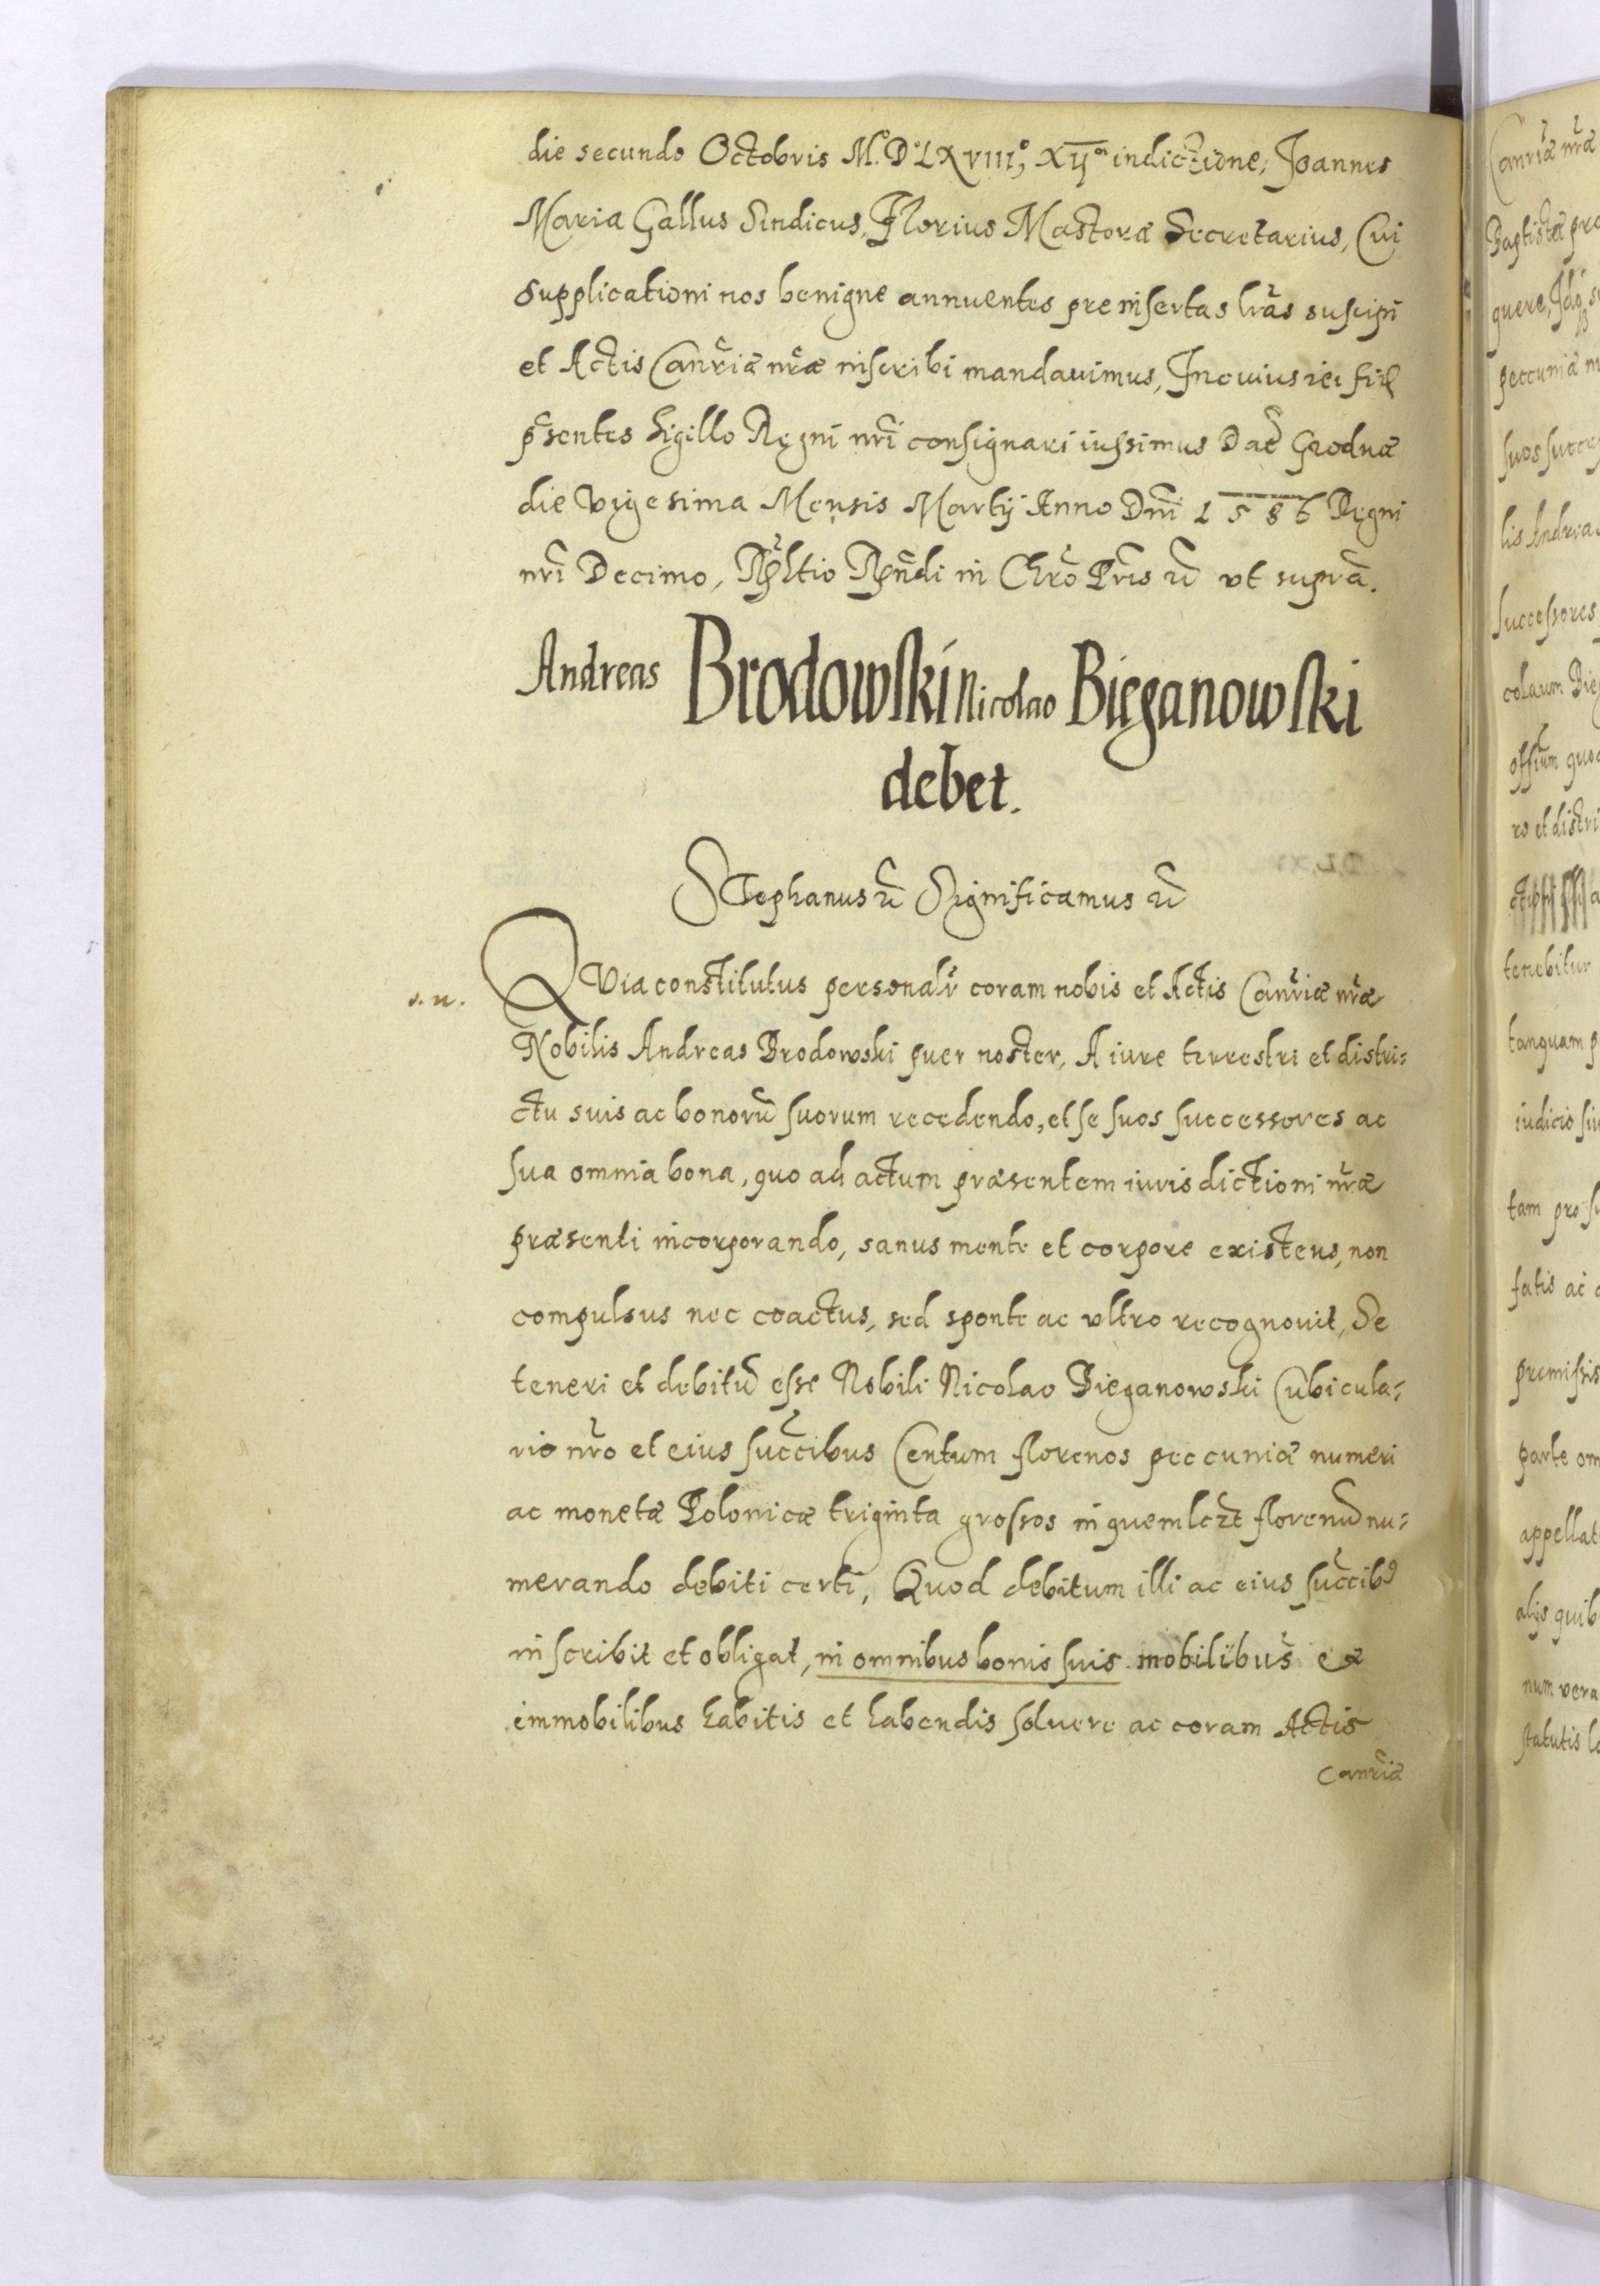 die secundo Octobris M.D.LXVIII°, XIJª indictione, Joannes
Maria Gallus Sindicus, Florius Mastora Secretarius, Cui
supplicationi nos benigne annuentes preinsertas lras suscipi
et Actis Canriæ nræ inscribi mandavimus, In cuius rei fid
psentes Sigillo Regni nri consignari iussimus Dat Grodnæ
die vigesima Mensis Martij Anno Dni 1586 Regni
nri Decimo, Rndi in Chro Pris ut supra.
Andreas Brodowski Nicolao Bieganowski
debet.
Stephanus Significamus
s. n.
QVia constitutus personalr coram nobis et Actis Canriæ nræ
Nobilis Andreas Brodowski puer noster, A iure terrestri et distri:
ctu suis ac bonorũ suorum recedendo, et se suos successores ac
sua omnia bona, quo ad actum præsentem iurisdictioni nræ
præsenti incorporando, sanus mente et corpore existens, non
compulsus nec coactus, sed sponte ac ultro recognovit, Se
teneri et debitũ esse Nobili Nicolao Bieganowski Cubicula:
rio nro et eius succibus Centum florenos peccuniæ numeri
ac monetæ Polonicæ triginta grossos in quemlczt florenũ nu:
merando debiti certi, Quod debitum illi ac eius succib9
inscribit et obligat, in omnibus bonis suis mobilibus et
immobilibus habitis et habendis solvere ac coram Actis
Canriæ
Canriæ nræ
Baptistæ
quere,
peccuniæ
suos
lis Andrea
successores
colaum
offium
ro et distri
tenebitur
tanquam
iudicio
tam pro
fatis ac
premissis
parte
appellat
alijs quib
num vera
statutis